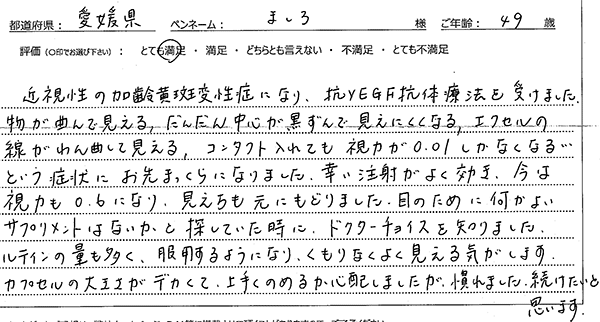 都道府県: 愛媛県 ペンネーム: ましろ 様 ご年齢: 49 歳
評価(○印でお選び下さい): とても満足・満足・どちらとも言えない・不満足・とても不満足
近視性の加齢黄斑変性症になり、抗VEGF抗体療法を受けました。
物が曲んで見える,だんだん中心が黒ずんで見えにくくなる,エクセルの
線がわん曲して見える,コンタクト入れても視力が0.01しかなくなる…
という症状にお先まっくらになりました。幸い注射がよく効き、今は
視力も0.6になり、見え方も元にもどりました。目のために何かよい
サプリメントはないかと探していた時に、ドクターチョイスを知りました。
ルテインの量も多く、服用するようになり、くもりなくよく見える気がします。
カプセルの大きさがデカくて、上手くのめるか心配しましたが、慣れました。続けたいと
思います。